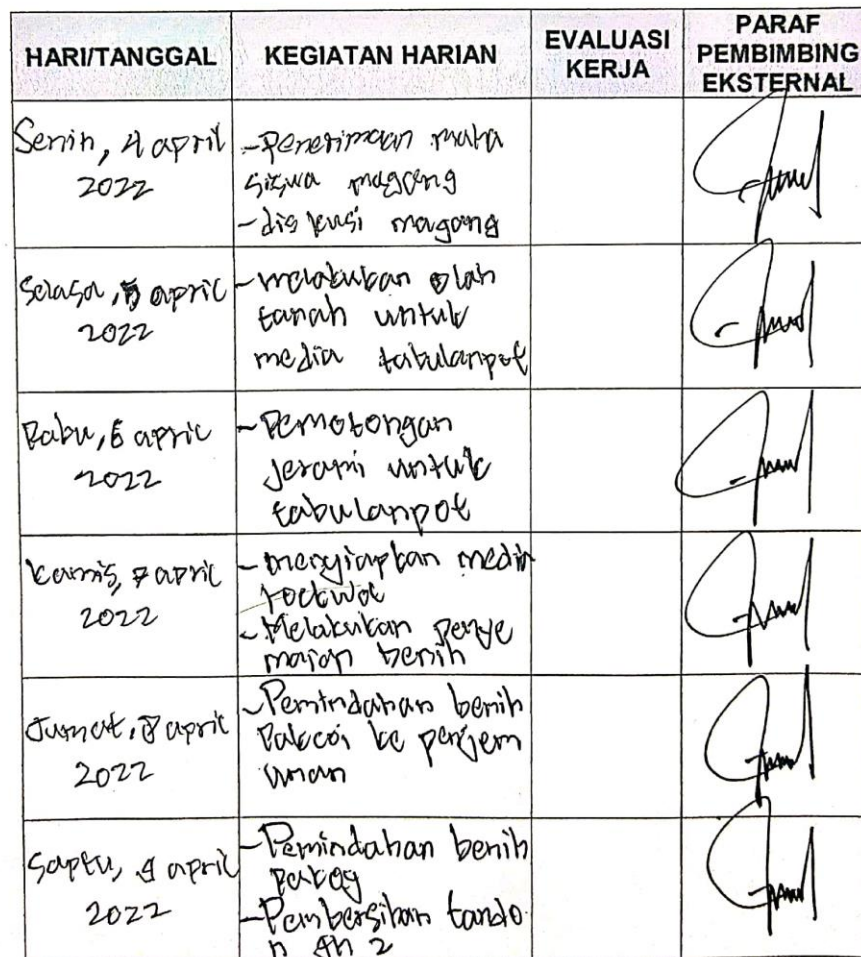 HARI/TANGGAL
KEGIATAN HARIAN
EVALUASI
KERJA
PARAF
PEMBIMBING
EKSTERNAL
Senin, 4 april
2022
-Penerimaan maha
siswa magang
-diskusi magang
Selasa, 5 april
2022
-melakukan olah
tanah untuk
media tabulanpot
Rabu, 6 april
2022
-Pemotongan
jerami untuk
tabulanpot
kamis, 7 april
2022
-menyiapkan media
rockwol
-Melakukan penye
maian benih
Jumat, 8 april
2022
-Pemindahan benih
Pakcoi ke
saptu, 9 april
2022
-Pemindahan benih
-Pembersihan tando
n gh 2